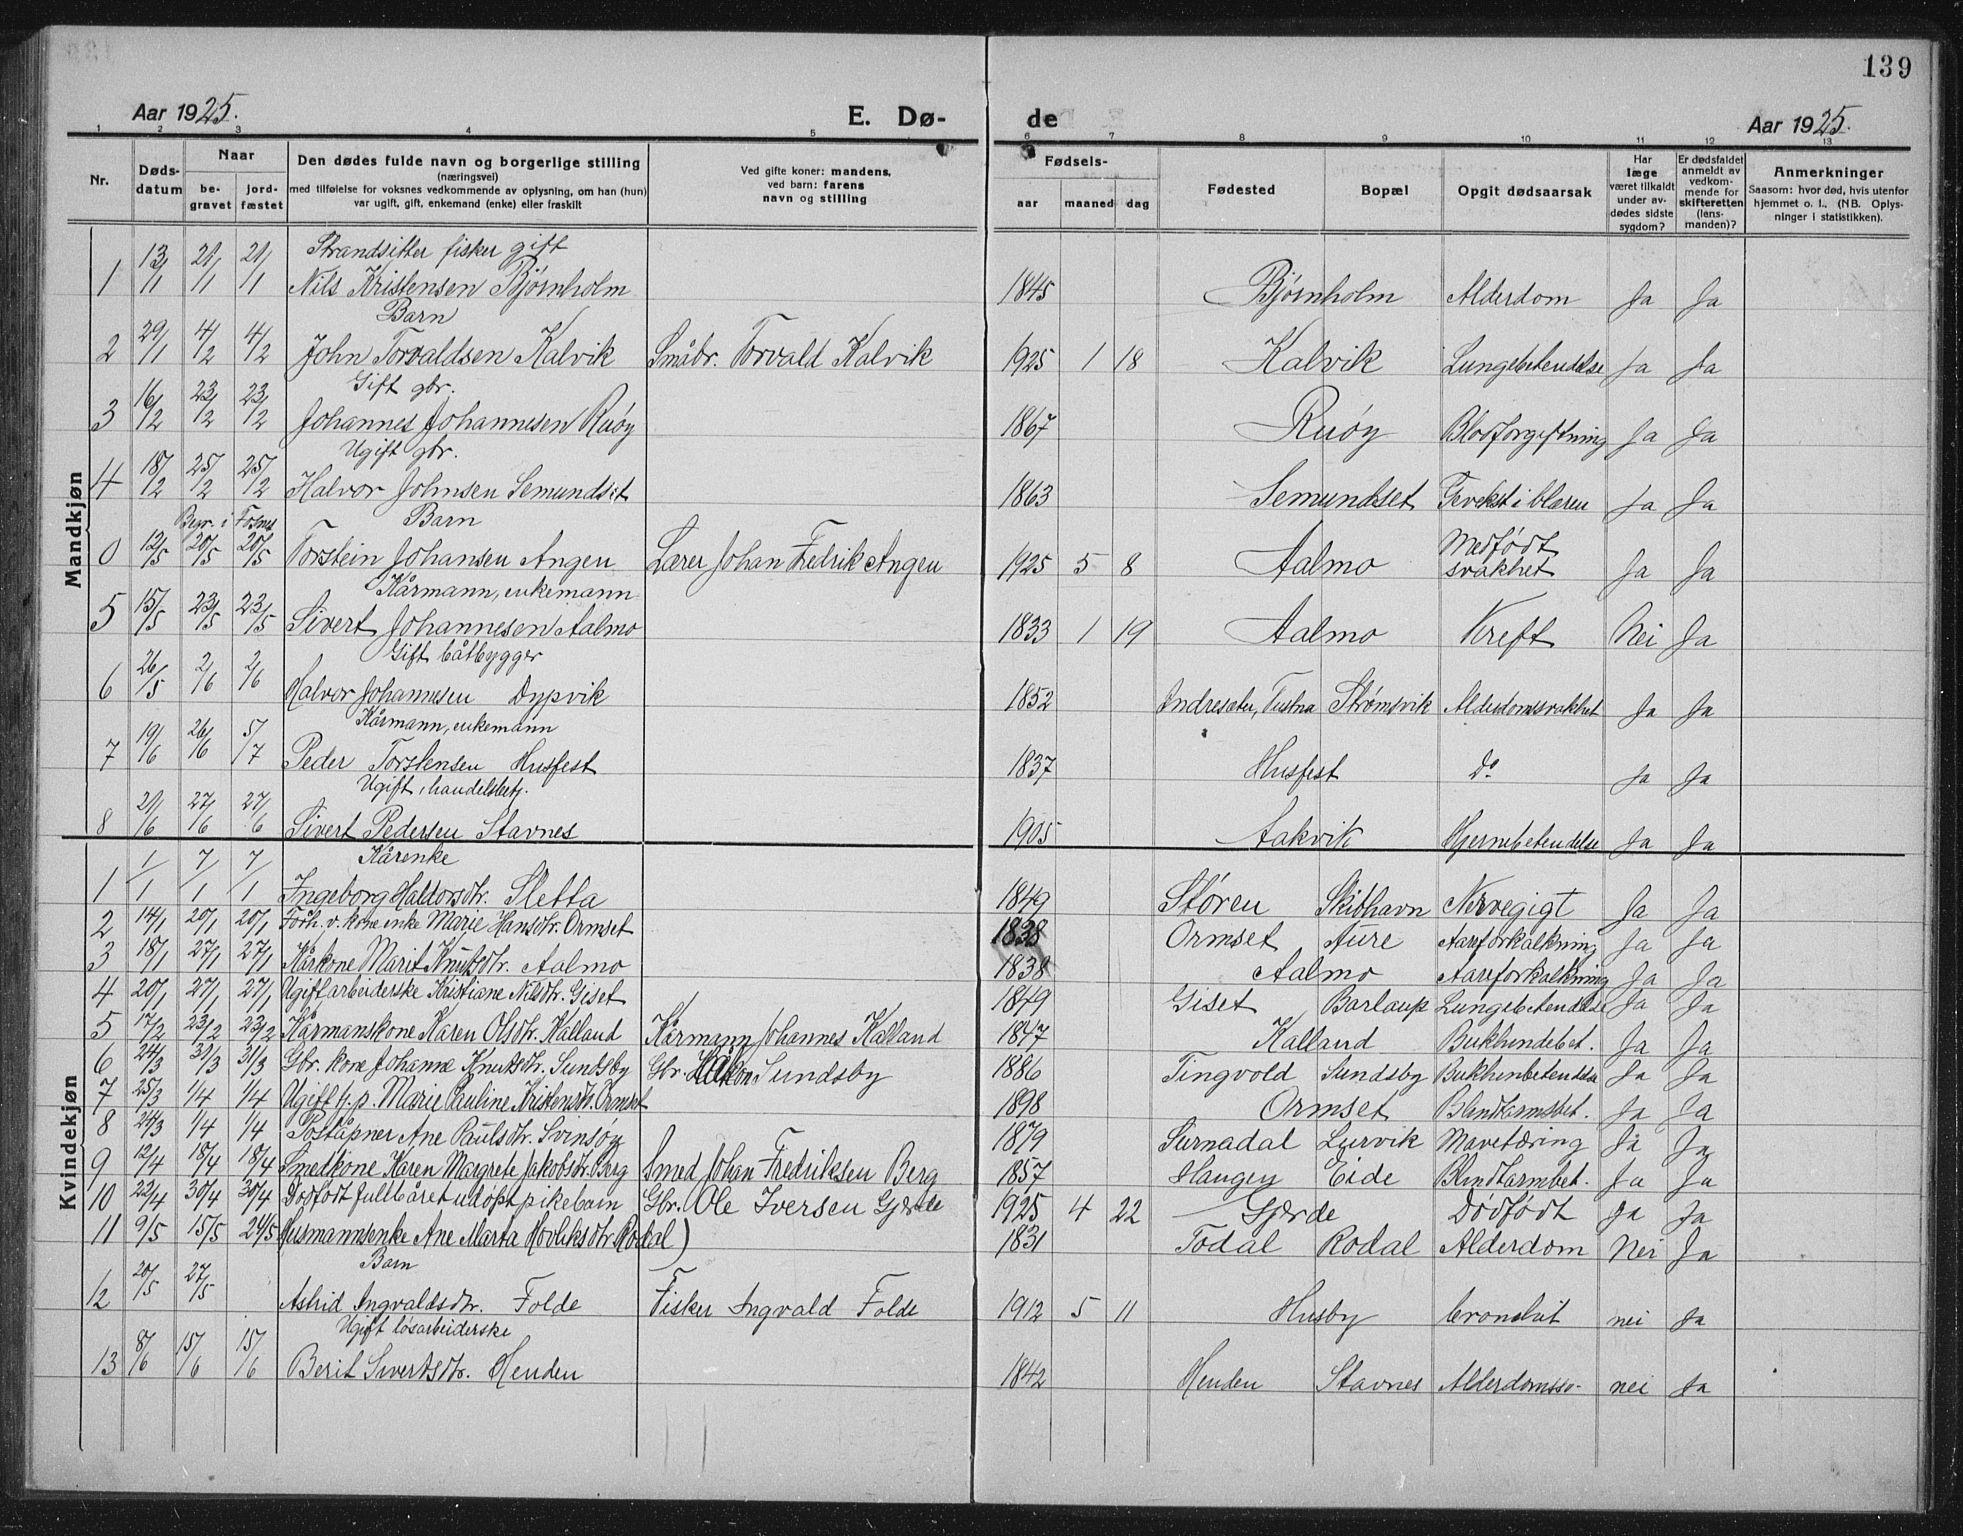 139
Aar 1925. E. Dø- de Aar 1925.
1 2 3 4 5 6 7 8 9 10 11 12 13
Nr. Døds-datum Naar be-gravet jord-fæstet Den dødes fulde navn og borgerlige stilling (næringsvei) med tilføielse for voksnes vedkommende av oplysning, om han (hun) var ugift, gift, enkemand (enke) eller fraskilt Ved gifte koner: mandens, ved barn: farens navn og stilling Fødsels- aar maaned dag Fødested Bopæl Opgit dødsaarsak Har læge været tilkaldt under av-dødes sidste sygdom? Er dødsfaldet anmeldt av vedkom-mende for skifteretten (lens-manden)? Anmerkninger Saasom: hvor død, hvis utenfor hjemmet o. l., (NB. Oplys-ninger i statistikken).
Mandkjøn
Strandsitter fisker gift
1 13/1 21/1 21/1 Nils Kristensen Bjørnholm 1845 Bjørnholm Alderdom Ja Ja
Barn
2 29/1 4/2 4/2 John Torvaldsen Kalvik Småbr. Torvald Kalvik 1925 1 18 Kalvik Lungebetendelse Ja Ja
Gift gbr.
3 16/2 23/2 23/2 Johannes Johannesen Ruøy 1867 Ruøy Blodforgiftning Ja Ja
Ugift gbr.
4 18/2 25/2 25/2 Halvor Johnsen Semundset 1863 Semundset Gevekst i blæren Ja Ja
Begr. i Fosnes Barn
0 12/5 20/5 20/5 Torstein Johansen Angen Lærer Johan Fredrik Angen 1925 5 8 Aalmo Medfødt svakhet Ja Ja
Kårmann, enkemann
5 15/5 23/5 23/5 Sivert Johannesen Aalmo 1833 1 19 Aalmo Kreft Nei Ja
Gift båtbygger
6 26/5 2/6 2/6 Halvor Johannesen Dypvik 1852 Indresæter, Tustna Strømsvik Alderdomssvakhet Ja Ja
Kårmann, enkemann
7 19/6 26/6 5/7 Peder Torstensen Husfest 1837 Husfest do Ja Ja
Ugift, handelsbetj.
8 21/6 27/6 27/6 Sivert Pedersen Stavnes 1905 Aakvik Hjernebetendelse Ja Ja
Kvindekjøn
Kårenke
1 1/1 7/1 7/1 Ingeborg Haldorsdtr. Sletta 1849 Støren Skibhavn Nervegigt Ja Ja
2 14/1 20/1 20/1 Forh. v. kone enke Marie Hansdtr. Ormset 1838 Ormset Aure Aareforkalkning Ja Ja
3 18/1 27/1 27/1 Kårkone Marit Knutsdtr. Aalmo 1838 Aalmo Aareforkalkning Ja Ja
4 20/1 27/1 27/1 Ugift arbeiderske Kristiane Nilsdtr. Giset 1849 Giset Barlaup Lungebetendelse Ja Ja
5 17/2 23/2 23/2 Kårmanskone Karen Olsdtr. Kalland Kårmann Johannes Kalland 1847 Kalland Bukhindebet. Ja Ja
6 24/3 31/3 31/3 Gbr. kone Johanne Knutsdtr. Sundsby Gbr. Håkon Sundsby 1886 Tingvold Sundsby Bukhinbetendelse Ja Ja
7 25/3 1/4 1/4 Ugift t.p. Marie Pauline Kristensdtr. Ormset 1898 Ormset Blindtarmsbet. Ja Ja
8 24/3 1/4 1/4 Poståpner Ane Paulsdtr. Svinsøy 1879 Surnadal Lurvik Mavetæring Ja Ja
9 12/4 18/4 18/4 Smedkone Karen Margrete Jakobsdtr. Berg Smed Johan Fredriksen Berg 1857 Haugen Eide Blindtarmbet. Ja Ja
10 22/4 30/4 30/4 Dødfødt fullbåret udøpt pikebarn Gbr. Ole Iversen Gjerde 1925 4 22 Gjerde Dødfødt Ja Ja
11 9/5 15/5 24/5 Husmannsenke Ane Marta Hovliksdtr. Rodal) 1831 Todal Rodal Alderdom Nei Ja
Barn
12 20/5 27/5 Astrid Ingvaldsdtr. Folde Fisker Ingvald Folde 1912 5 11 Husby nei Ja
Ugift løsarbeiderske
13 8/6 15/6 15/6 Berit Sivertsdtr. Henden 1842 Henden Stavnes Alderdomssv. nei Ja